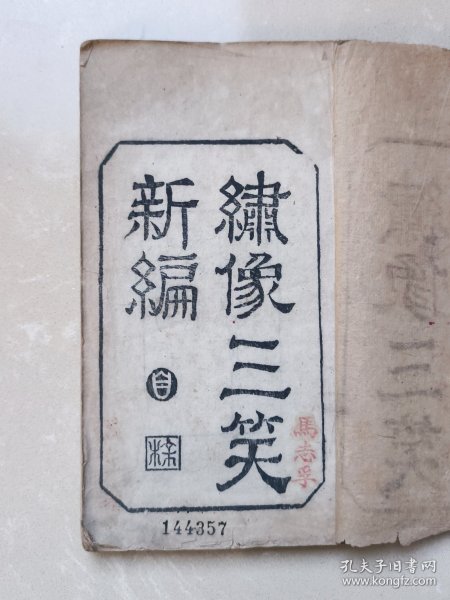 繡像三笑
新編
馬志孚
144357
孔夫子旧书网
www.kongfz.com